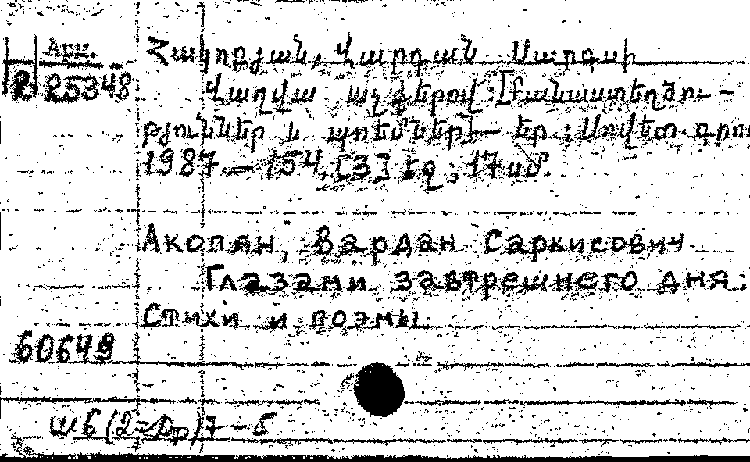 Арм.
2 25348
Հակոբյան, Վարդան Սարգսի
Վաղվա աչքերով: [Բանաստեղծու-
թյուններ և պոեմներ].- Եր.; Սովետ. գրող
1987.- 154, [3] էջ; 17 սմ.
Акопян, Вардан Саркисович
Глазами завтрешнего дня:
Стихи и поэмы.
60649